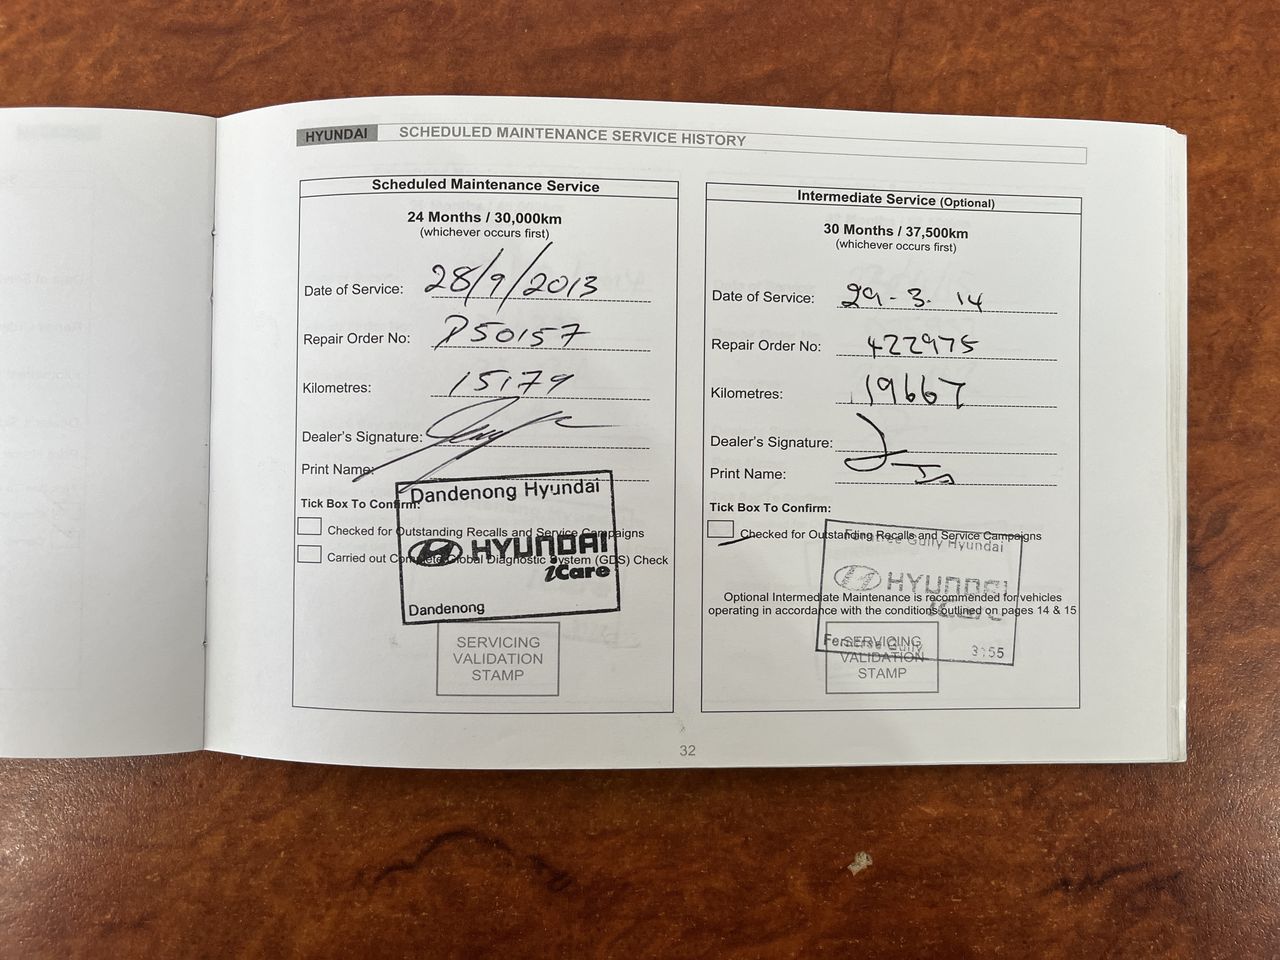 HYUNDAI SCHEDULED MAINTENANCE SERVICE HISTORY
Scheduled Maintenance Service
24 Months / 30,000km
(whichever occurs first)
Date of Service: 28/9/2013
Repair Order No: P50157
Kilometres: 15179
Dealer's Signature:
Print Name:
Tick Box To Confirm:
Checked for Outstanding Recalls and Service Campaigns
Carried out Complete Global Diagnostic System (GDS) Check
Dandenong Hyundai
HYUNDAI
iCare
Dandenong
SERVICING
VALIDATION
STAMP
Intermediate Service (Optional)
30 Months / 37,500km
(whichever occurs first)
Date of Service: 29-3.14
Repair Order No: 422975
Kilometres: 19667
Dealer's Signature:
Print Name:
Tick Box To Confirm:
Checked for Outstanding Recalls and Service Campaigns
Gully Hyundai
HYUNDAI
iCare
Optional Intermediate Maintenance is recommended for vehicles
operating in accordance with the conditions outlined on pages 14 & 15
Gully
SERVICING
VALIDATION
STAMP
32